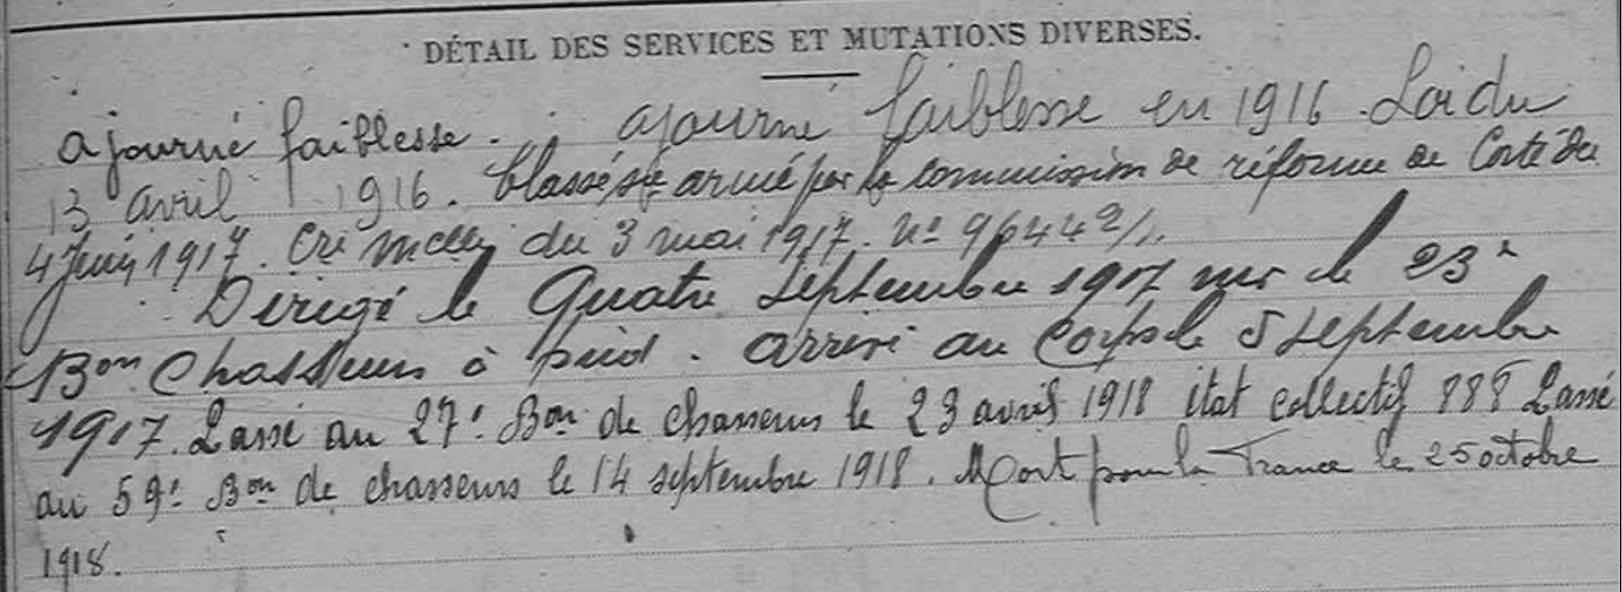 DÉTAIL DES SERVICES ET MUTATIONS DIVERSES.
ajourné faiblesse. ajourné faiblesse en 1916. Loi du
13 avril 1916. Classé sce armé par la commission de réforme de Corté du
4 Juin 1917. Cre Mlle du 3 mai 1917. No 9644 2/1.
Dirigé le Quatre septembre 1917 sur le 23e
Bon Chasseurs à pied. arrivé au Corps le 5 septembre
1917. Passé au 27e Bon de chasseurs le 23 avril 1918 état collectif 888 Passé
au 59e Bon de chasseurs le 14 septembre 1918. Mort pour la France le 25 octobre
1918.